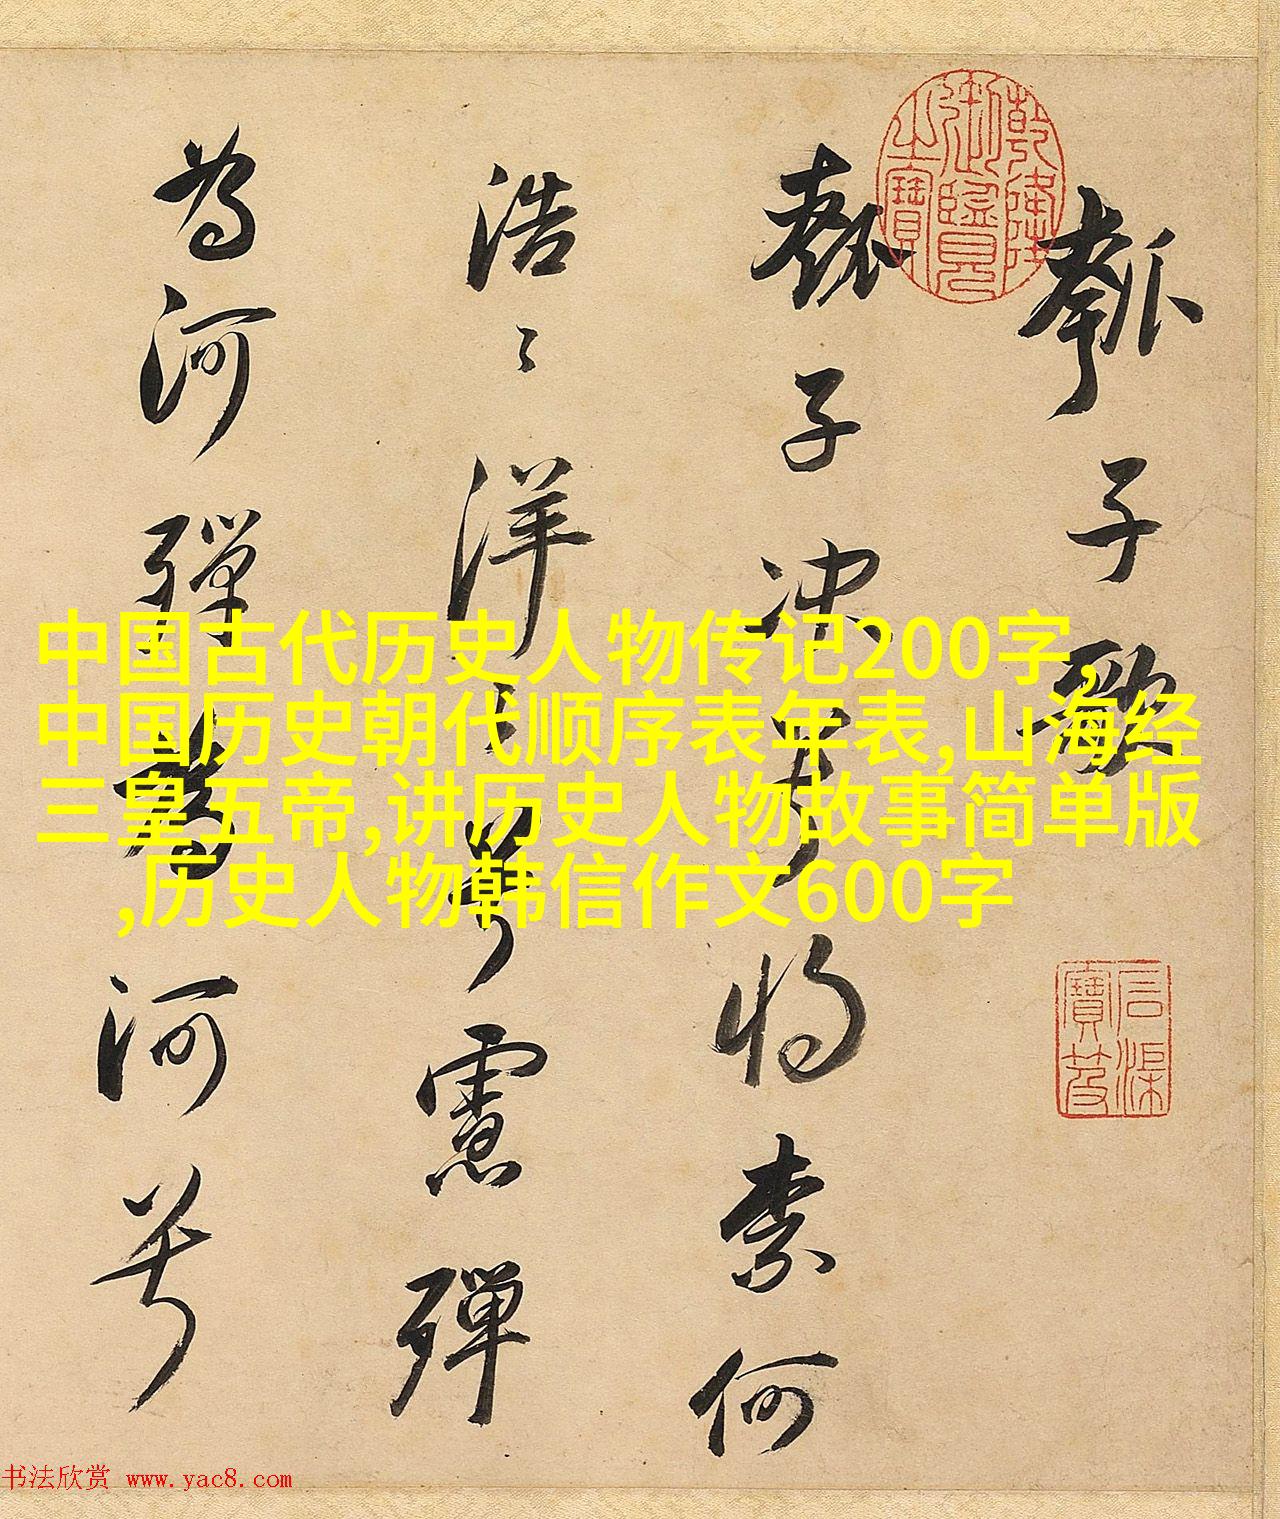 瓠子歌
瓠子决兮將柰何
浩〻洋〻兮慮殫
為河殫為河兮
乾隆御覽之寶
石渠寶笈
中国古代历史人物传记200字,
中国历史朝代顺序表年表,山海经
三皇五帝,讲历史人物故事简单版
,历史人物韩信作文600字
书法欣赏 www.yac8.com